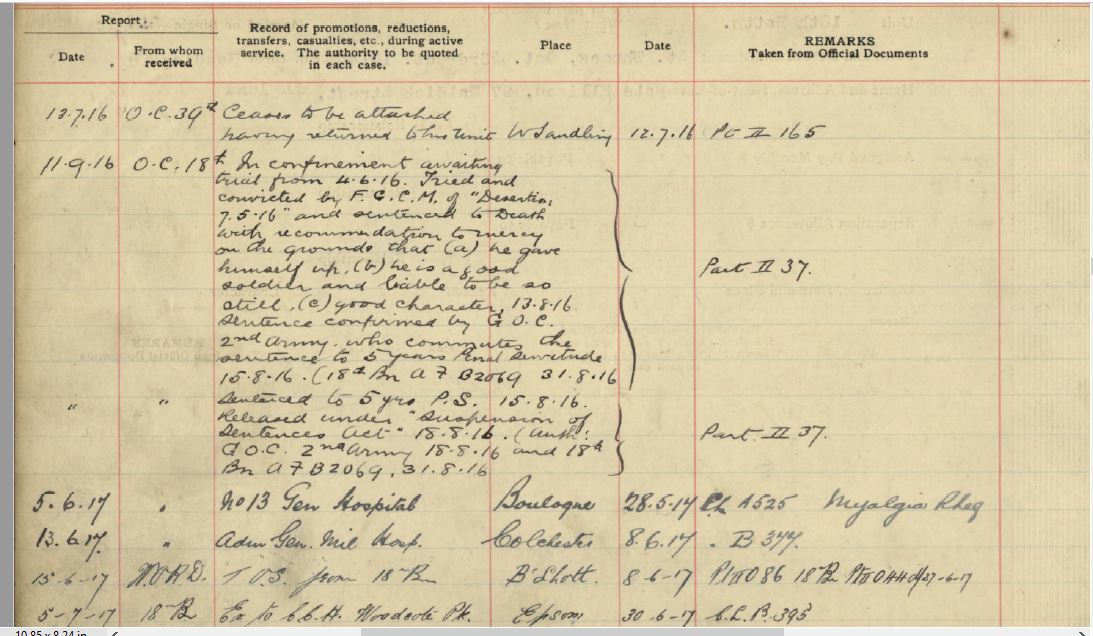 Report.
Date
From whom
received
Record of promotions, reductions,
transfers, casualties, etc., during active
service. The authority to be quoted
in each case.
Place
Date
REMARKS
Taken from Official Documents
12.7.16 O.C. 39th Ceases to be attached
having returned to his Unit W Sandling 12.7.16 Pt II 165
11.9.16 O.C. 18th In confinement awaiting
trial from 4.6.16. Tried and
convicted by F.G.C.M. of "Desertion
7.5.16" and sentenced to Death
with recommendation to mercy
on the grounds that (a) he gave
himself up, (b) he is a good
soldier and liable to be so
still, (c) good character, 13.8.16.
Part II 37.
Sentence confirmed by G.O.C.
2nd Army. who commutes the
sentence to 5 years Penal Servitude
15.8.16. (18th Bn A F B2069 31.8.16
" " Sentenced to 5 yrs P.S. 15.8.16.
Released under "Suspension of
Sentences Act" 18.8.16. (Auth:
Part. II 37.
G.O.C. 2nd Army 18.8.16 and 18th
Bn A F B2069. 31.8.16
5.6.17 " No 13 Gen Hospital Boulogne 28.5.17 CL A525 Myalgia
13.6.17. " Adm Gen. Mil Hosp. Colchester 8.6.17 . B 377.
15-6-17 W.O.R.D. T.O.S. from 18 Bn B'Shott. 8-6-17 Pt II O 86 18 Bn Pt II O 44 d/27-6-17
5-7-17 18 Bn Ex to C.C.H. Woodcote Pk. Epsom 30-6-17 C.L. B. 395
10.85 x 8.24 in